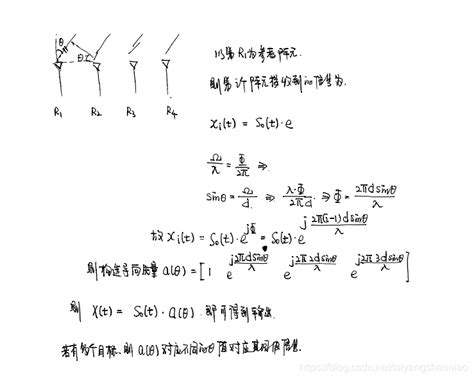 θ
R₁ R₂ R₃ R₄
以第R₁为参考阵元.
则第i个阵元接收到的信号为.
xᵢ(t) = S₀(t)·e
Ω/λ = Φ/2π ⇒
sinθ = Ω/d = λ·Φ/2πd ⇒ Φ = 2πdsinθ/λ
故 xᵢ(t) = S₀(t)·e^{jΦ} = S₀(t)·e^{j 2π(i-1)dsinθ/λ}
则构造导向矢量 a(θ) = [1 e^{j2πdsinθ/λ} e^{j2π2dsinθ/λ} e^{j2π3dsinθ/λ}]
则 X(t) = S₀(t)·a(θ). 即可得到输出.
若有多个目标, 则 a(θ) 对应不同的θ值对应
https://blog.csdn.net/taiyangshenniao